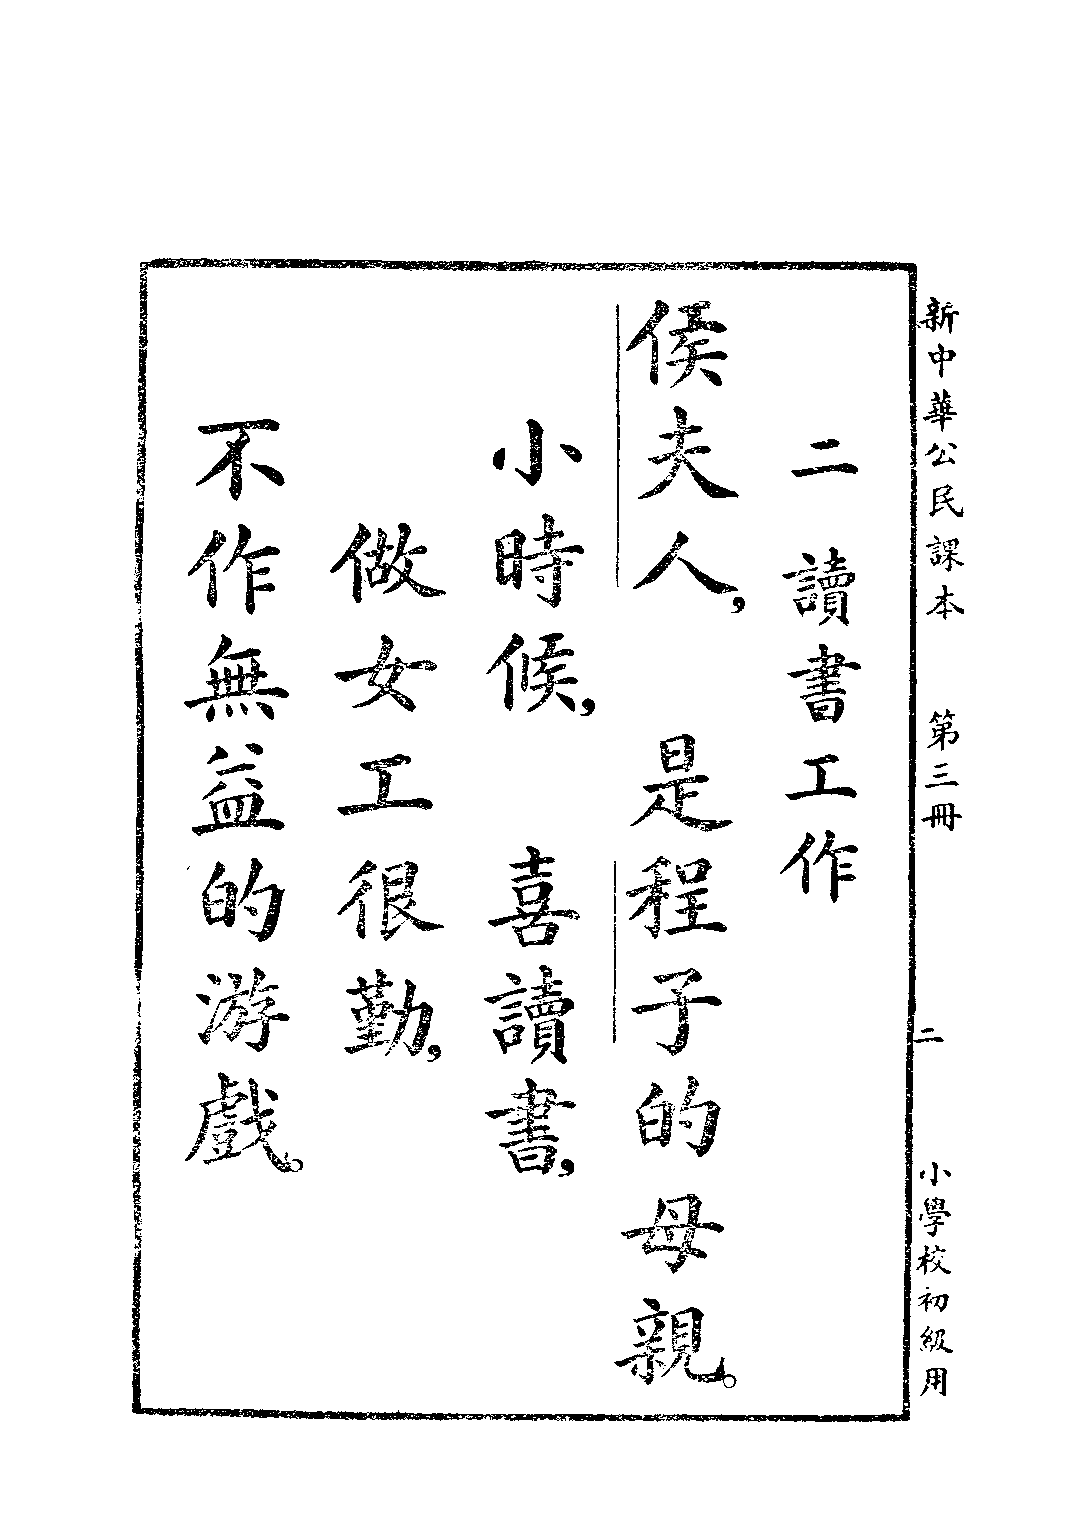 新中華公民課本 第三冊 二 小學校初級用
二 讀書工作
侯夫人， 是程子的母親。
小時候， 喜讀書，
做女工很勤，
不作無益的游戲。